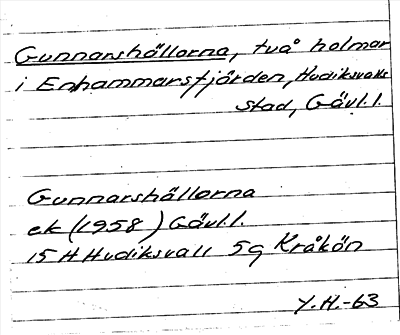 Gunnarshällorna, två holmar
i Enhammarsfjärden, Hudiksvalls
stad, Gävl.l.
Gunnarshällorna
ek (1958) Gävl.l.
15 H Hudiksvall 5g Kråkön
Y.H.-63